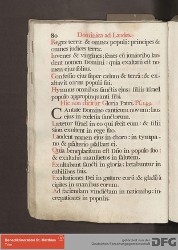 80 Dominica ad Laudes.
Reges terræ & omnes populi: principes &
omnes judices terræ.
Juvenes & virgines: senes cū junioribus laudent nomen Domini: quia exaltatū est nomen ejus solius.
Confessio ejus super cælum & terrā: & exaltavit cornu populi sui.
Hymnus omnibus sanctis ejus: filiis Israel
populo appropinquanti sibi.
Hic non dicitur Gloria Patri. Ps.149.
Cantate Domino canticum novum: laus
ejus in ecclesia sanctorum.
Lætetur Israel in eo qui fecit eum: & filii
Sion exultent in rege suo.
Laudent nomen ejus in choro: in tympano & psalterio psallant ei.
Quia beneplacitum est Dño in populo suo:
& exaltabit mansuetos in salutem.
Exultabunt sancti in gloria: lætabuntur in
cubilibus suis.
Exaltationes Dei in gutture eorū: & gladii
ancipites in manibus eorum.
Ad faciendam vindictam in nationibus: increpationes in populis.
DFG